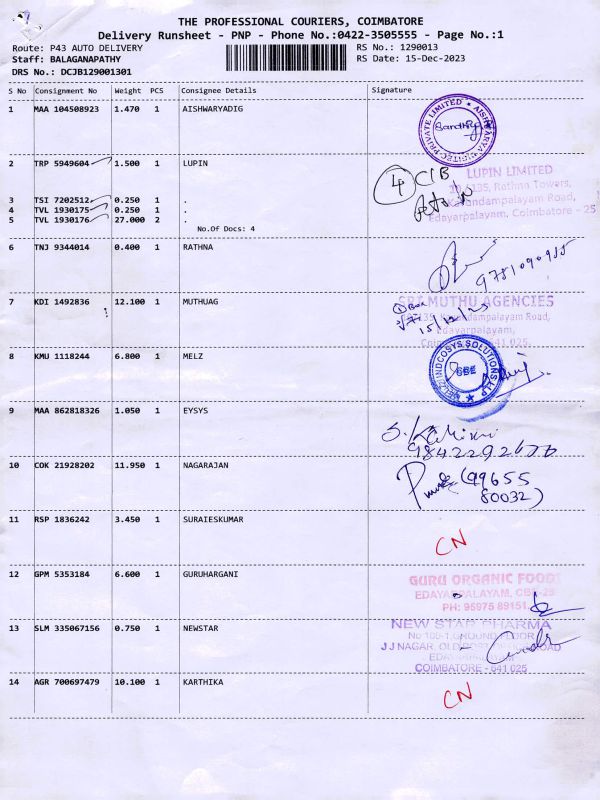 THE PROFESSIONAL COURIERS, COIMBATORE
Delivery Runsheet - PNP - Phone No.:0422-3505555 - Page No.:1
Route: P43 AUTO DELIVERY RS No.: 1290013
Staff: BALAGANAPATHY RS Date: 15-Dec-2023
DRS No.: DCJB129001301
S No Consignment No Weight PCS Consignee Details Signature
1 MAA 104508923 1.470 1 AISHWARYADIG
Sandhiya
2 TRP 5949604 1.500 1 LUPIN
4 CIB
LUPIN LIMITED
135, Rathna Towers,
Kavundampalayam Road,
Edayarpalayam, Coimbatore - 25
3 TSI 7202512 0.250 1 .
4 TVL 1930175 0.250 1 .
5 TVL 1930176 27.000 2 .
No.Of Docs: 4
6 TNJ 9344014 0.400 1 RATHNA
7 KDI 1492836 12.100 1 MUTHUAG
SRI MUTHU AGENCIES
15/12/23
Edayarpalayam,
641 025.
8 KMU 1118244 6.800 1 MELZ
MELZ INDCOSYS SOLUTIONS LLP
CBE
9 MAA 862818326 1.050 1 EYSYS
10 COK 21928202 11.950 1 NAGARAJAN
(99655
80032)
11 RSP 1836242 3.450 1 SURAIESKUMAR
CN
12 GPM 5353184 6.600 1 GURUHARGANI
GURU ORGANIC FOODS
EDAYARPALAYAM, CBE-25
PH: 95975 89151
13 SLM 335067156 0.750 1 NEWSTAR
NEW STAR PHARMA
No 106-1, GROUND FLOOR
J J NAGAR, OLD POST OFFICE ROAD
COIMBATORE - 641 025
14 AGR 700697479 10.100 1 KARTHIKA
CN